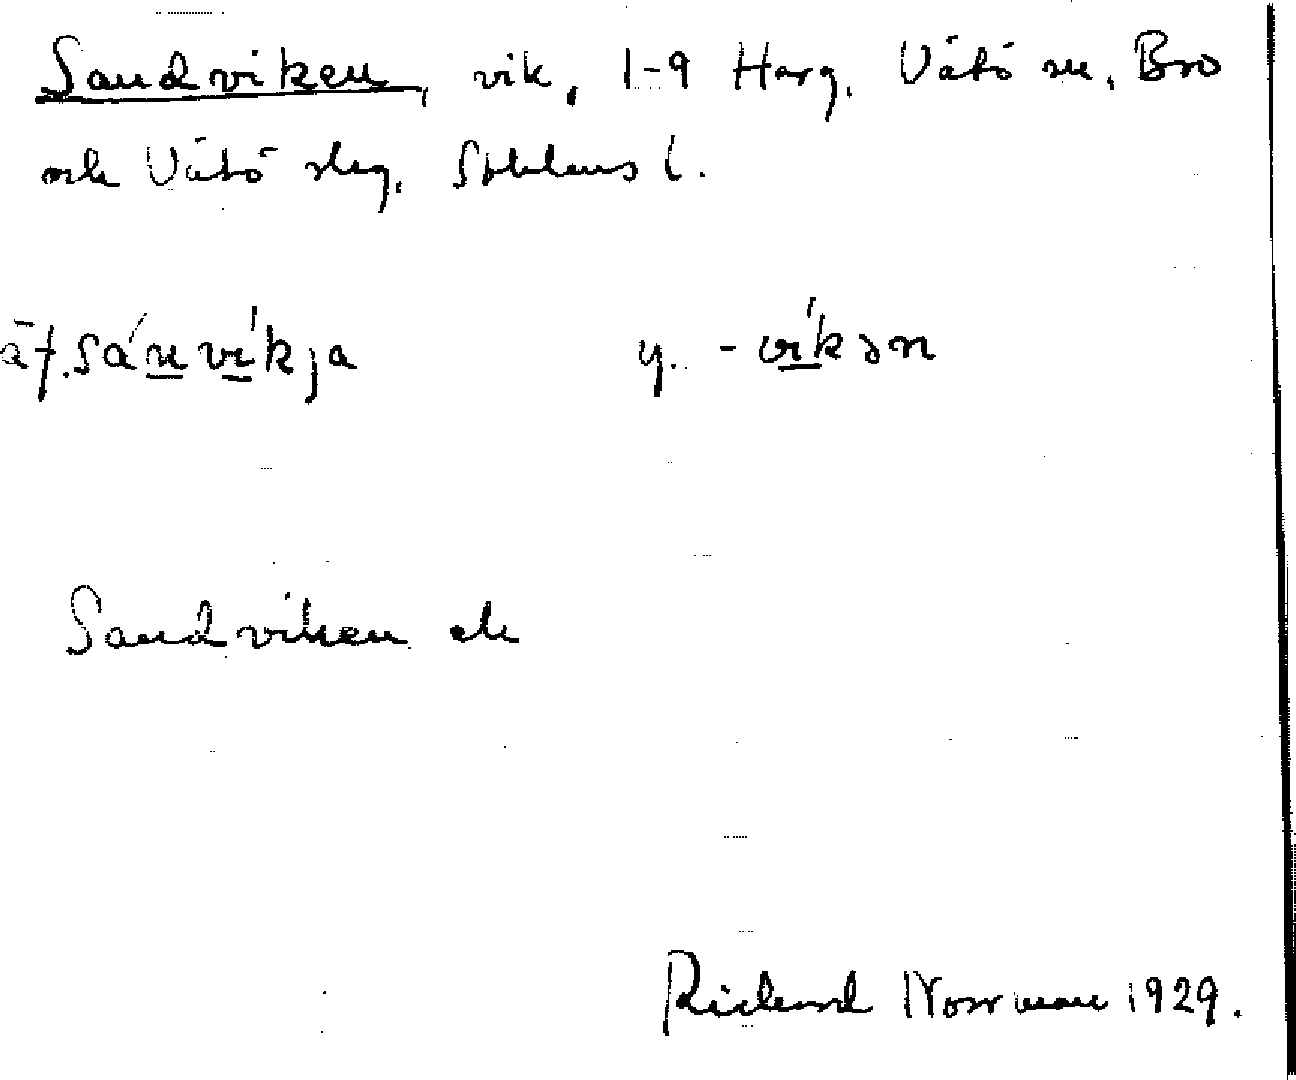 Sandviken, vik, 1-9 Harg, Vätö sn, Bro
och Vätö slg, Sthlms l.
äf. sánvíkja y. -víkən
Sandviken ek
Richard Norrman 1929.